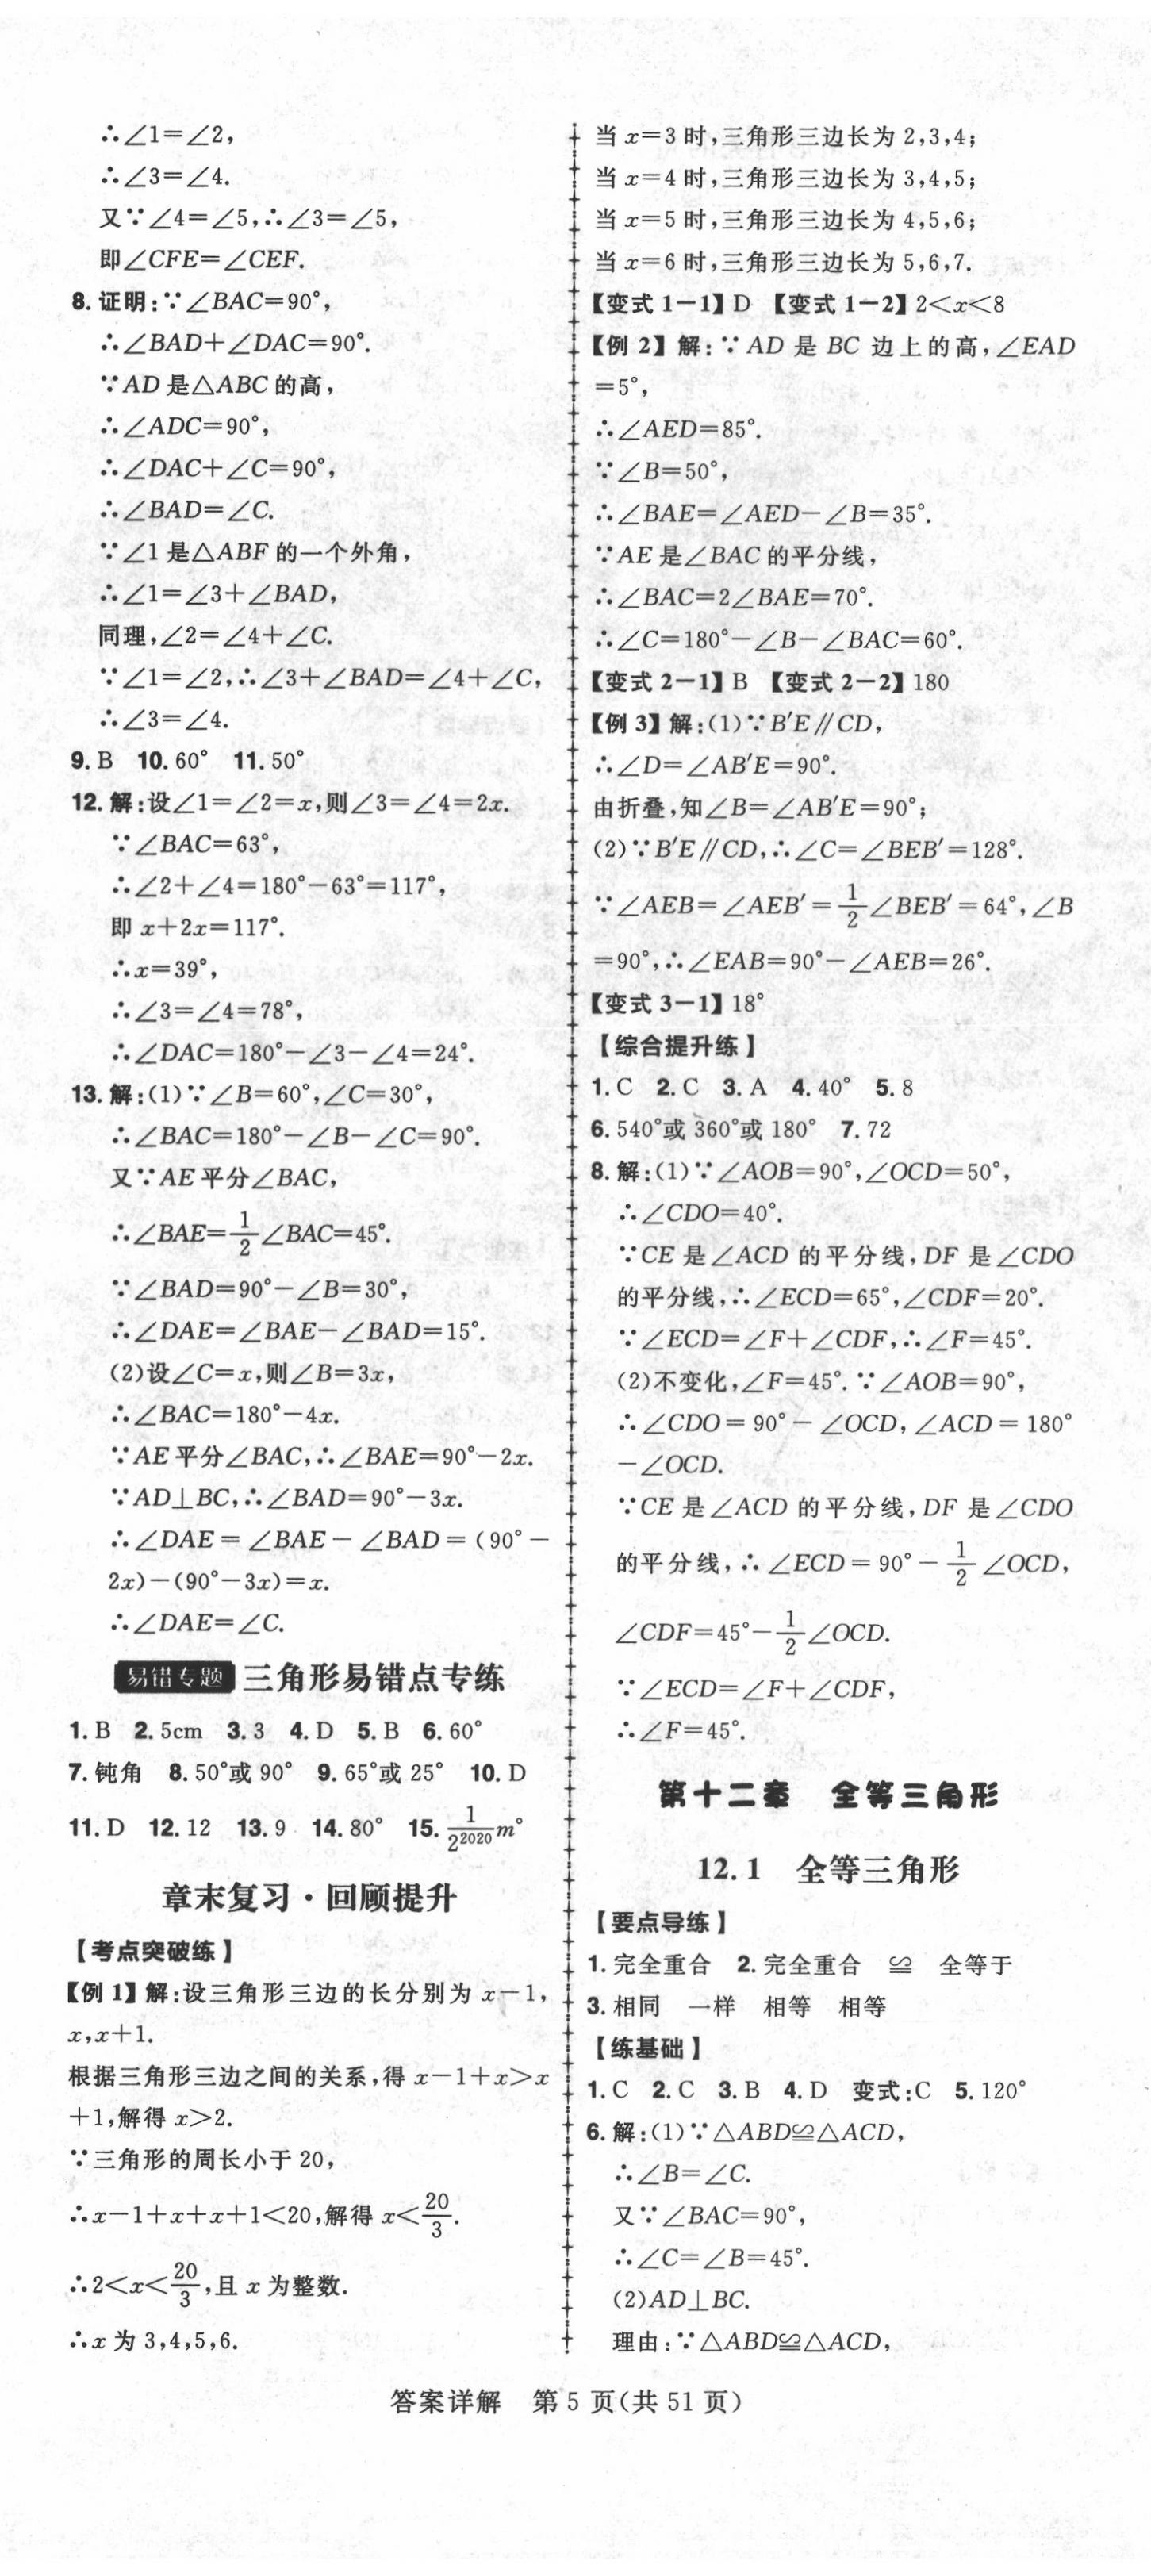 ∴∠1=∠2,
∴∠3=∠4.
又∵∠4=∠5,∴∠3=∠5,
即∠CFE=∠CEF.
8.证明:∵∠BAC=90°,
∴∠BAD+∠DAC=90°.
∵AD是△ABC的高,
∴∠ADC=90°,
∴∠DAC+∠C=90°,
∴∠BAD=∠C.
∵∠1是△ABF的一个外角,
∴∠1=∠3+∠BAD,
同理,∠2=∠4+∠C.
∵∠1=∠2,∴∠3+∠BAD=∠4+∠C,
∴∠3=∠4.
9.B 10.60° 11.50°
12.解:设∠1=∠2=x,则∠3=∠4=2x.
∵∠BAC=63°,
∴∠2+∠4=180°-63°=117°,
即x+2x=117°.
∴x=39°,
∴∠3=∠4=78°,
∴∠DAC=180°-∠3-∠4=24°.
13.解:(1)∵∠B=60°,∠C=30°,
∴∠BAC=180°-∠B-∠C=90°.
又∵AE平分∠BAC,
∴∠BAE=1/2∠BAC=45°.
∵∠BAD=90°-∠B=30°,
∴∠DAE=∠BAE-∠BAD=15°.
(2)设∠C=x,则∠B=3x,
∴∠BAC=180°-4x.
∵AE平分∠BAC,∴∠BAE=90°-2x.
∵AD⊥BC,∴∠BAD=90°-3x.
∴∠DAE=∠BAE-∠BAD=(90°-
2x)-(90°-3x)=x.
∴∠DAE=∠C.
易错专题 三角形易错点专练
1.B 2.5cm 3.3 4.D 5.B 6.60°
7.钝角 8.50°或90° 9.65°或25° 10.D
11.D 12.12 13.9 14.80° 15.1/2^2020 m°
章末复习·回顾提升
【考点突破练】
【例1】解:设三角形三边的长分别为x-1,
x,x+1.
根据三角形三边之间的关系,得x-1+x>x
+1,解得x>2.
∵三角形的周长小于20,
∴x-1+x+x+1<20,解得x<20/3.
∴2<x<20/3,且x为整数.
∴x为3,4,5,6.
当x=3时,三角形三边长为2,3,4;
当x=4时,三角形三边长为3,4,5;
当x=5时,三角形三边长为4,5,6;
当x=6时,三角形三边长为5,6,7.
【变式1-1】D 【变式1-2】2<x<8
【例2】解:∵AD是BC边上的高,∠EAD
=5°,
∴∠AED=85°.
∵∠B=50°,
∴∠BAE=∠AED-∠B=35°.
∵AE是∠BAC的平分线,
∴∠BAC=2∠BAE=70°.
∴∠C=180°-∠B-∠BAC=60°.
【变式2-1】B 【变式2-2】180
【例3】解:(1)∵B′E∥CD,
∴∠D=∠AB′E=90°.
由折叠,知∠B=∠AB′E=90°;
(2)∵B′E∥CD,∴∠C=∠BEB′=128°.
∵∠AEB=∠AEB′=1/2∠BEB′=64°,∠B
=90°,∴∠EAB=90°-∠AEB=26°.
【变式3-1】18°
【综合提升练】
1.C 2.C 3.A 4.40° 5.8
6.540°或360°或180° 7.72
8.解:(1)∵∠AOB=90°,∠OCD=50°,
∴∠CDO=40°.
∵CE是∠ACD的平分线,DF是∠CDO
的平分线,∴∠ECD=65°,∠CDF=20°.
∵∠ECD=∠F+∠CDF,∴∠F=45°.
(2)不变化,∠F=45°.∵∠AOB=90°,
∴∠CDO=90°-∠OCD,∠ACD=180°
-∠OCD.
∵CE是∠ACD的平分线,DF是∠CDO
的平分线,∴∠ECD=90°-1/2∠OCD,
∠CDF=45°-1/2∠OCD.
∵∠ECD=∠F+∠CDF,
∴∠F=45°.
第十二章 全等三角形
12.1 全等三角形
【要点导练】
1.完全重合 2.完全重合 ≌ 全等于
3.相同 一样 相等 相等
【练基础】
1.C 2.C 3.B 4.D 变式:C 5.120°
6.解:(1)∵△ABD≌△ACD,
∴∠B=∠C.
又∵∠BAC=90°,
∴∠C=∠B=45°.
(2)AD⊥BC.
理由:∵△ABD≌△ACD,
答案详解 第5页(共51页)